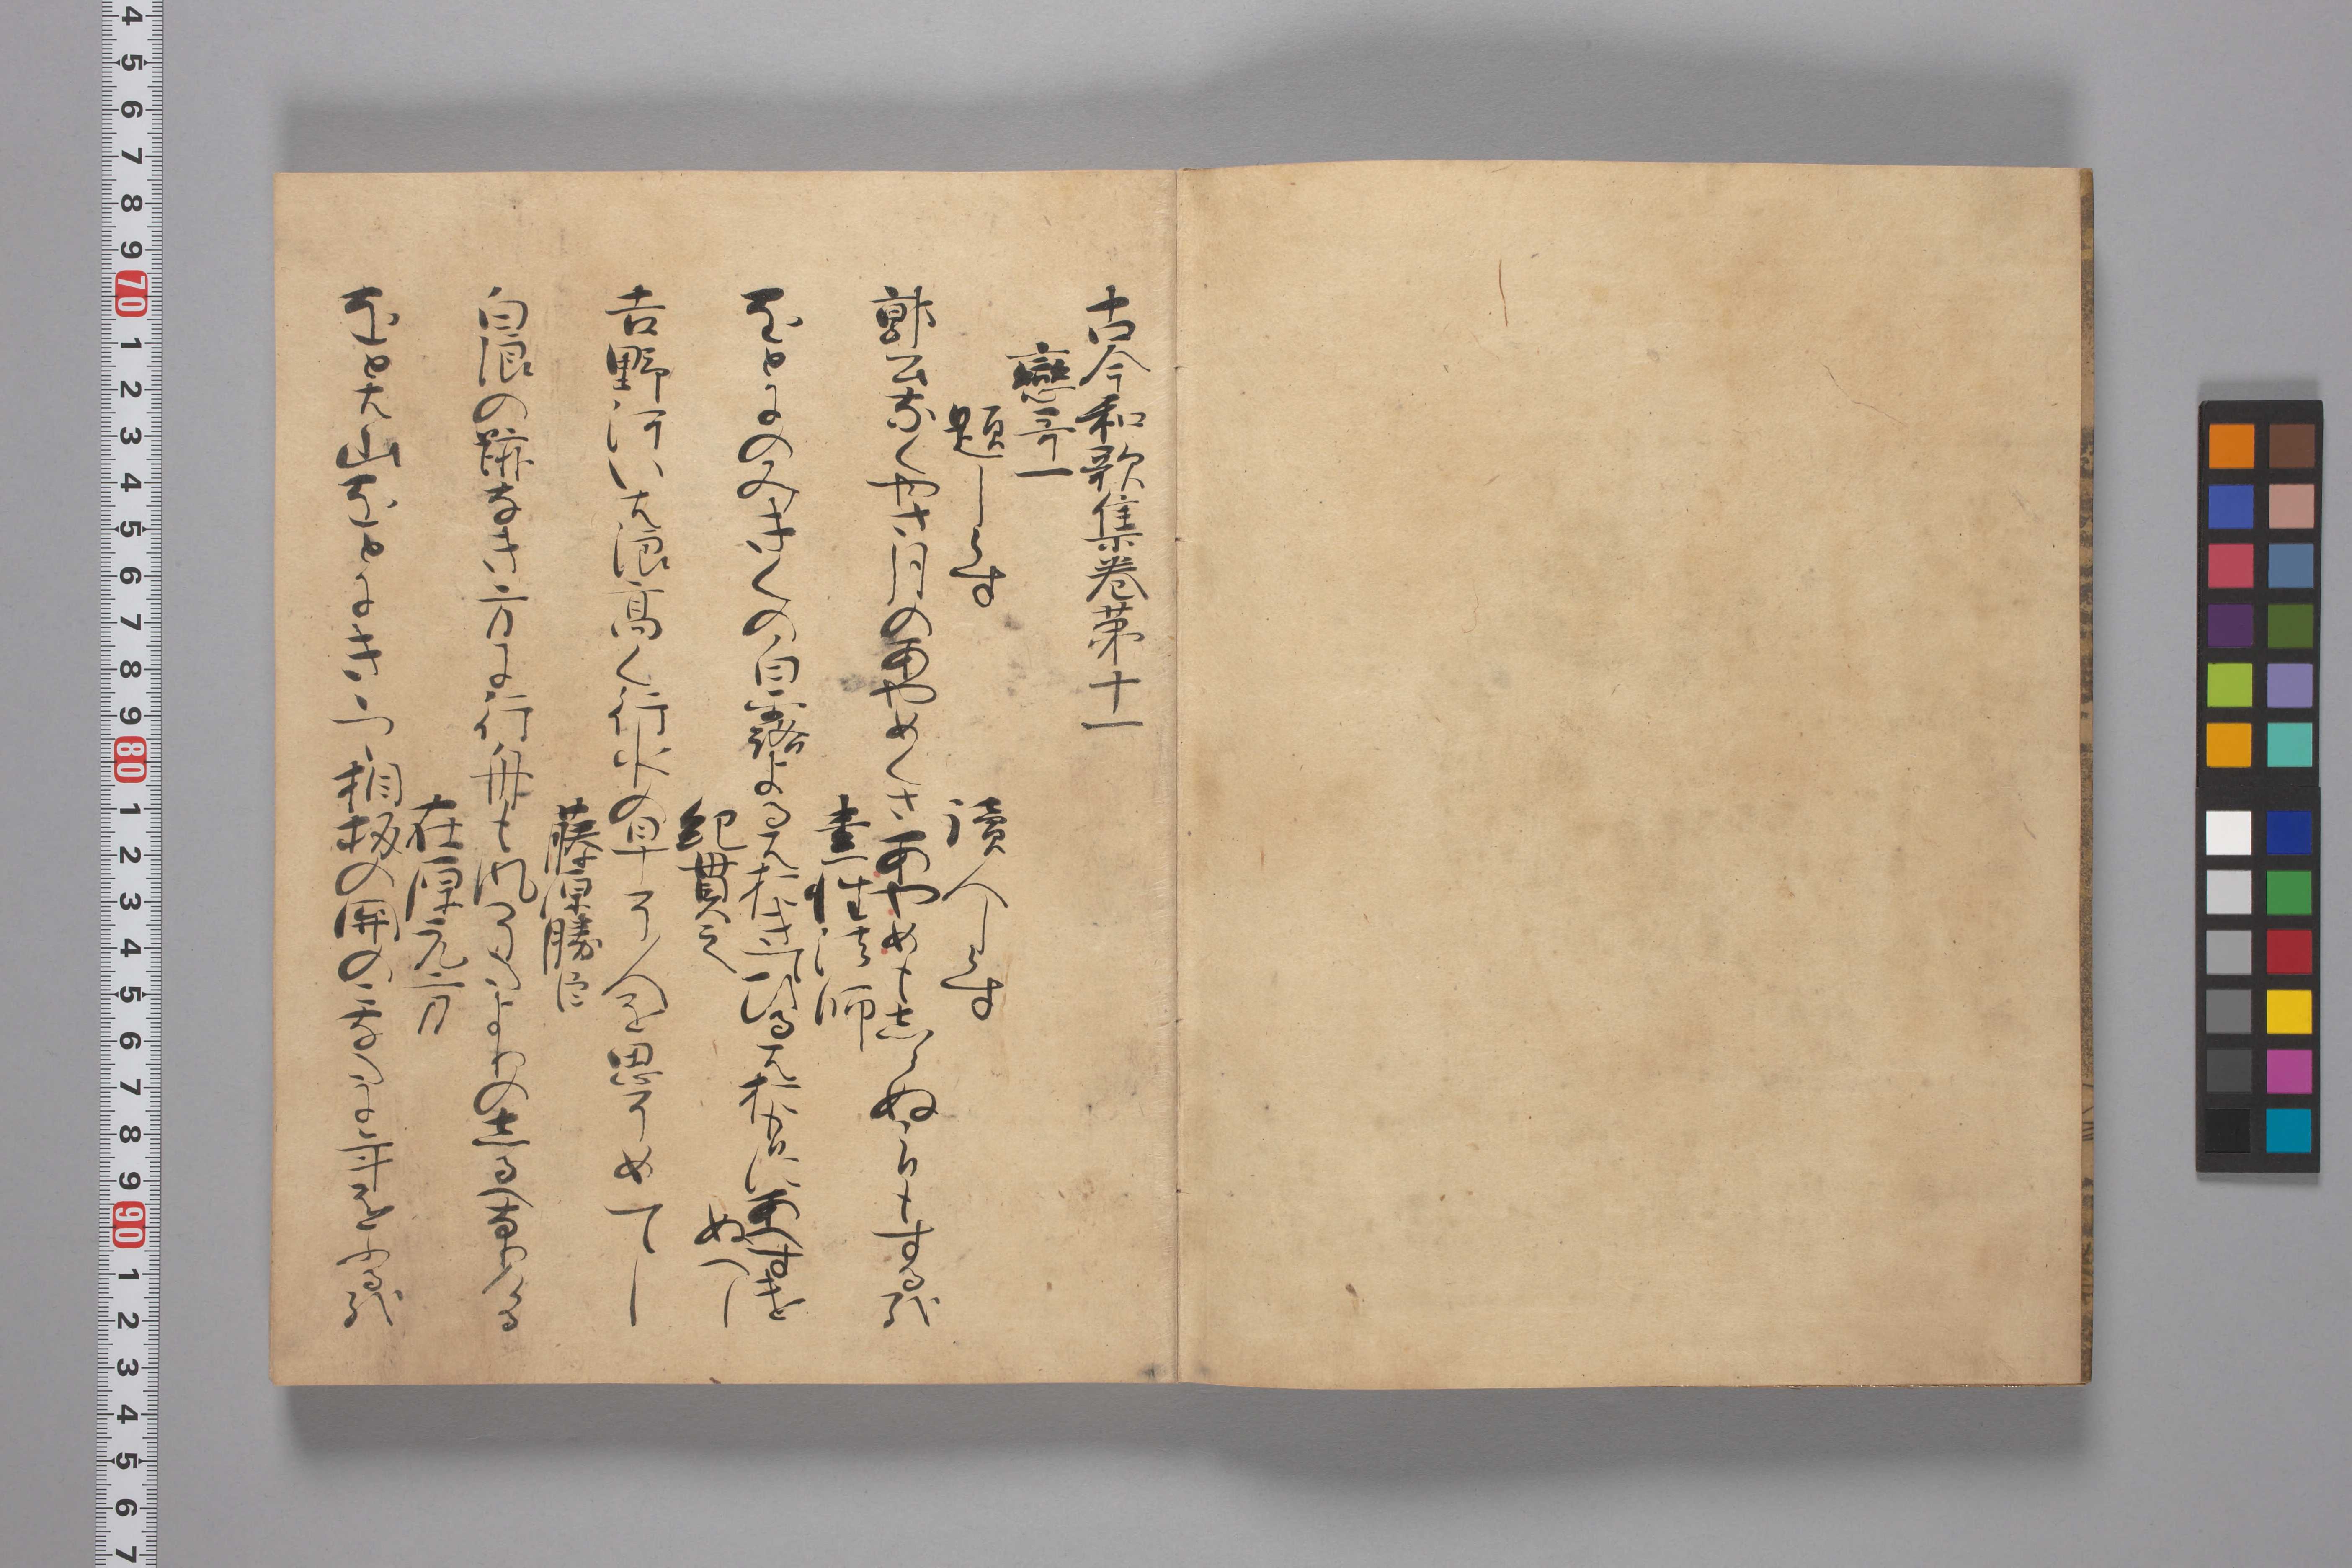 古今和歌集巻第十一
戀哥一
題しらす
讀人しらす
郭公なくやさ月のあやめくさあやめもしらぬこひもするかな
素性法師
をとにのみきくの白露よるはおきてひるはおもひにあへすきえ
ぬへし
紀貫之
吉野河いは浪高く行水の早くそ人を思そめてし
藤原勝臣
白浪の跡なき方に行舟も風そたよりのしるへなりける
在原元方
をとは山をとにきゝつゝ相坂の関のこなたに年をふるかな